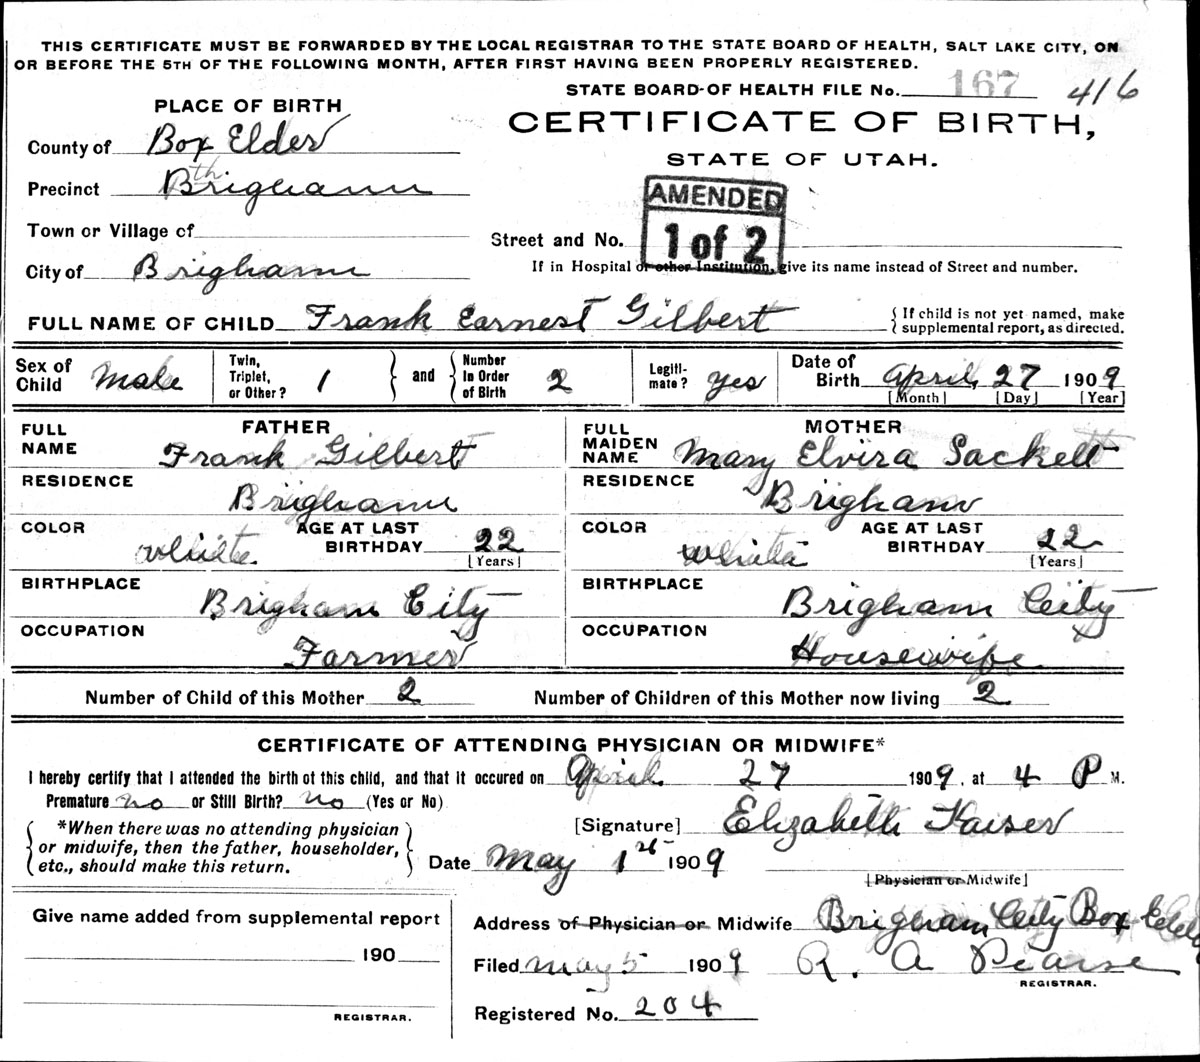 THIS CERTIFICATE MUST BE FORWARDED BY THE LOCAL REGISTRAR TO THE STATE BOARD OF HEALTH, SALT LAKE CITY, ON
OR BEFORE THE 5TH OF THE FOLLOWING MONTH, AFTER FIRST HAVING BEEN PROPERLY REGISTERED.
STATE BOARD OF HEALTH FILE No. 167 416
PLACE OF BIRTH
CERTIFICATE OF BIRTH,
STATE OF UTAH.
County of Box Elder
Precinct Brigham
AMENDED
1 of 2
Town or Village of
Street and No.
City of Brigham
If in Hospital or other Institution, give its name instead of Street and number.
FULL NAME OF CHILD Frank Earnest Gilbert
{ If child is not yet named, make
supplemental report, as directed.
Sex of Child Male
Twin, Triplet, or Other? 1 } and { Number In Order of Birth 2
Legiti-mate? yes
Date of Birth April 27 1909
[Month] [Day] [Year]
FATHER
FULL NAME Frank Gilbert
RESIDENCE Brigham
COLOR white AGE AT LAST BIRTHDAY 22
[Years]
BIRTHPLACE Brigham City
OCCUPATION Farmer
MOTHER
FULL MAIDEN NAME Mary Elvira Sackett
RESIDENCE Brigham
COLOR white AGE AT LAST BIRTHDAY 22
[Years]
BIRTHPLACE Brigham City
OCCUPATION Housewife
Number of Child of this Mother 2 Number of Children of this Mother now living 2
CERTIFICATE OF ATTENDING PHYSICIAN OR MIDWIFE*
I hereby certify that I attended the birth of this child, and that it occured on April 27 1909, at 4 P M.
Premature no or Still Birth? no (Yes or No)
{ *When there was no attending physician
or midwife, then the father, householder,
etc., should make this return. }
[Signature] Elizabeth Kaiser
Date May 1st 1909
[Physician or Midwife]
Give name added from supplemental report
190
REGISTRAR.
Address of Physician or Midwife Brigham City Box Elder
Filed May 5 1909 R. A Pearse
REGISTRAR.
Registered No. 204